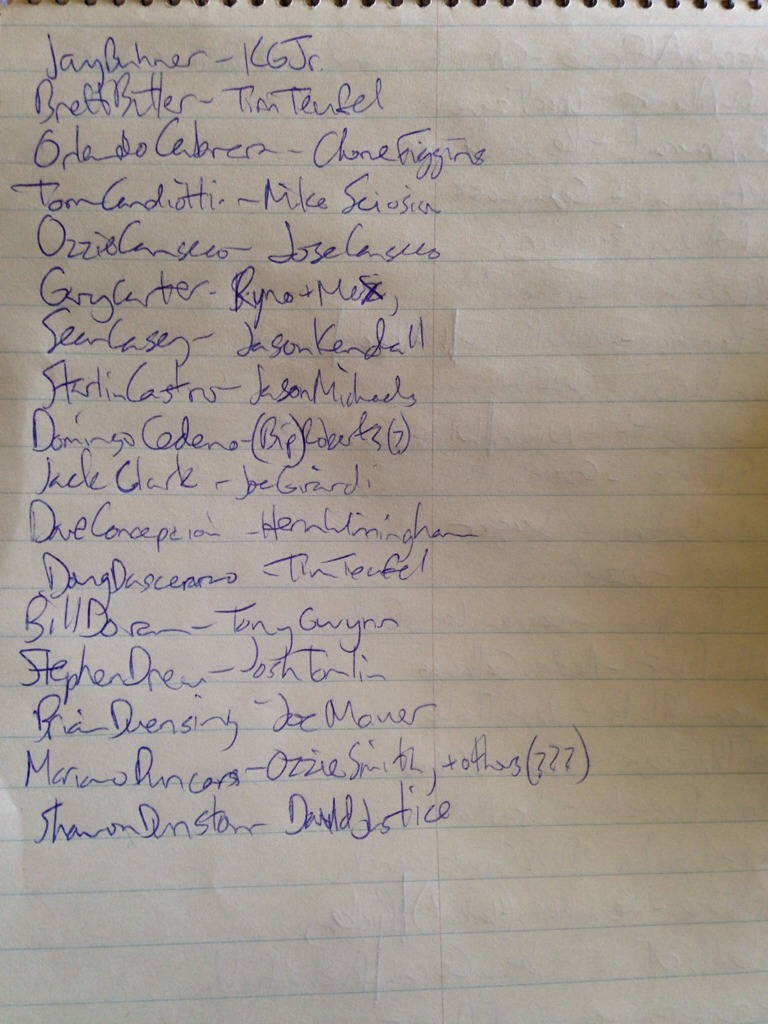 Jay Buhner - KGJr.
Brett Butler - Tim Teufel
Orlando Cabrera - Chone Figgins
Tom Candiotti - Mike Scioscia
Ozzie Canseco - Jose Canseco
Gary Carter - Ryno + Mex,
Sean Casey - Jason Kendall
Starlin Castro - Jason Michaels
Domingo Cedeno - (Bip) Roberts (?)
Jack Clark - Joe Girardi
Dave Concepcion - Herm Winningham
Doug Dascenzo - Tim Teufel
Bill Doran - Tony Gwynn
Stephen Drew - Josh Tomlin
Brian Duensing - Joe Mauer
Mariano Duncan - Ozzie Smith, + others (???)
Shawon Dunston - David Justice